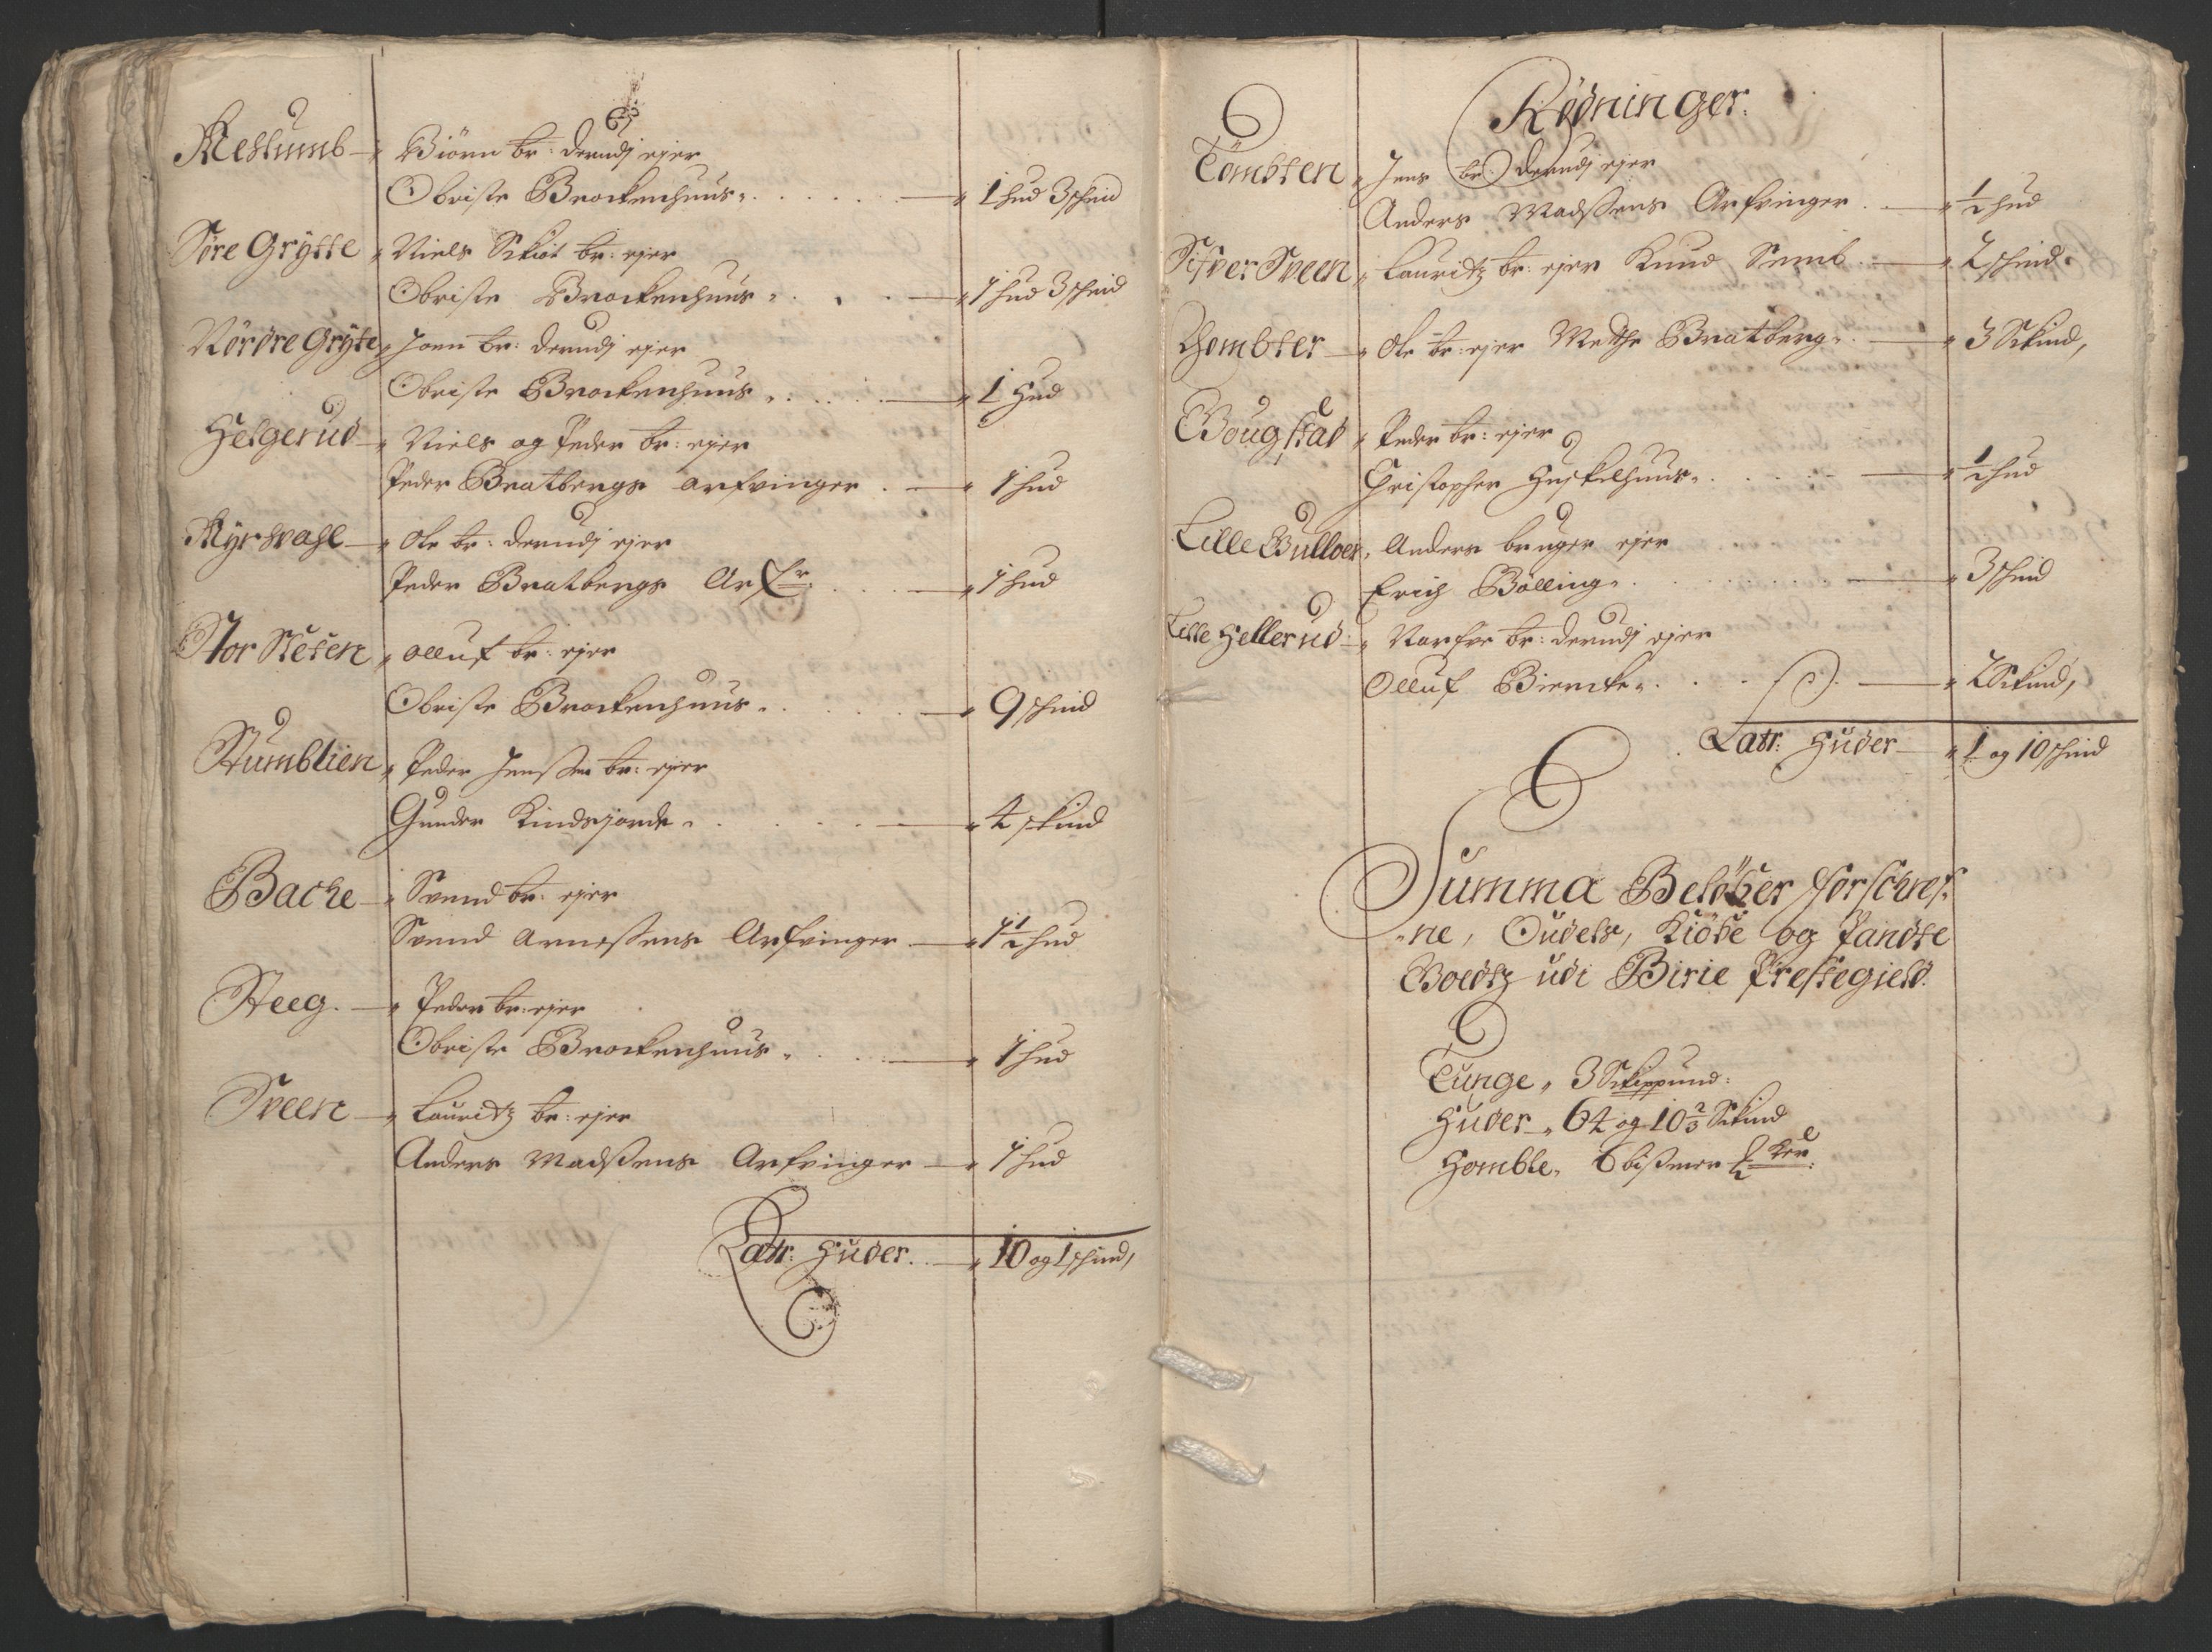 Mestumb Biörn br: derudj ejer
Obriste Brockenhuus 1 hud 3 schind
Söre Grÿtte Niels Skiöt br: ejer
Obriste Brockenhuus 1 hud 3 schind
Nördre Grÿte Joen br: derudj ejer
Obriste Brockenhuus 1 Hud
Helgerud Niels og Peder br: ejer
Peder Bratbergs arfvinger 1 hud
Myrhvahl Ole br: derudj ejer
Peder Bratbergs Arfr: 1 hud
Stor Steten olluf br: ejer
Obriste Brockenhuus 9 schind
Stumblien Peder Jenssen br: ejer
Gunder Kindsjorde 4 skind
Bache Svend br: ejer
Svend Arnessens Arfvinger 1½ hud
Steeg. Peder br: ejer
Obriste Brockenhuus 1 hud
Sveen Lauridtz br: ejer
Anders Madssens Arfvinger 1 hud
Latr: Huder 10 og 1 schind,
Rödninger.
Tombten Jens br: derudj ejer
Anders Madssens Arfvinger ½ hud
Sifver Sveen Lauridtz br: ejer Knud Semb 2 schind
Thombter Ole br: ejer Methe Bratberg 3 Skind,
Bougstad Peder br: ejer
Christopher Huskelhuus ½ hud
Lille Bulloer Anders bruger ejer
Erich Bölling 3 schind
Lille Hellerud Narfve br: derudj ejer
Olluf Biercke 2 Skind,
Latr: Huder 1 og 10 schind
Summa Belöber forschref:
ne, Oudels, Kiöbe og Pandte
Boedtz udi Birie Prestegield.
Tunge, 3 Skippund:
Huder 64 og 10⅔ Skind
Homble, 6 bissmer